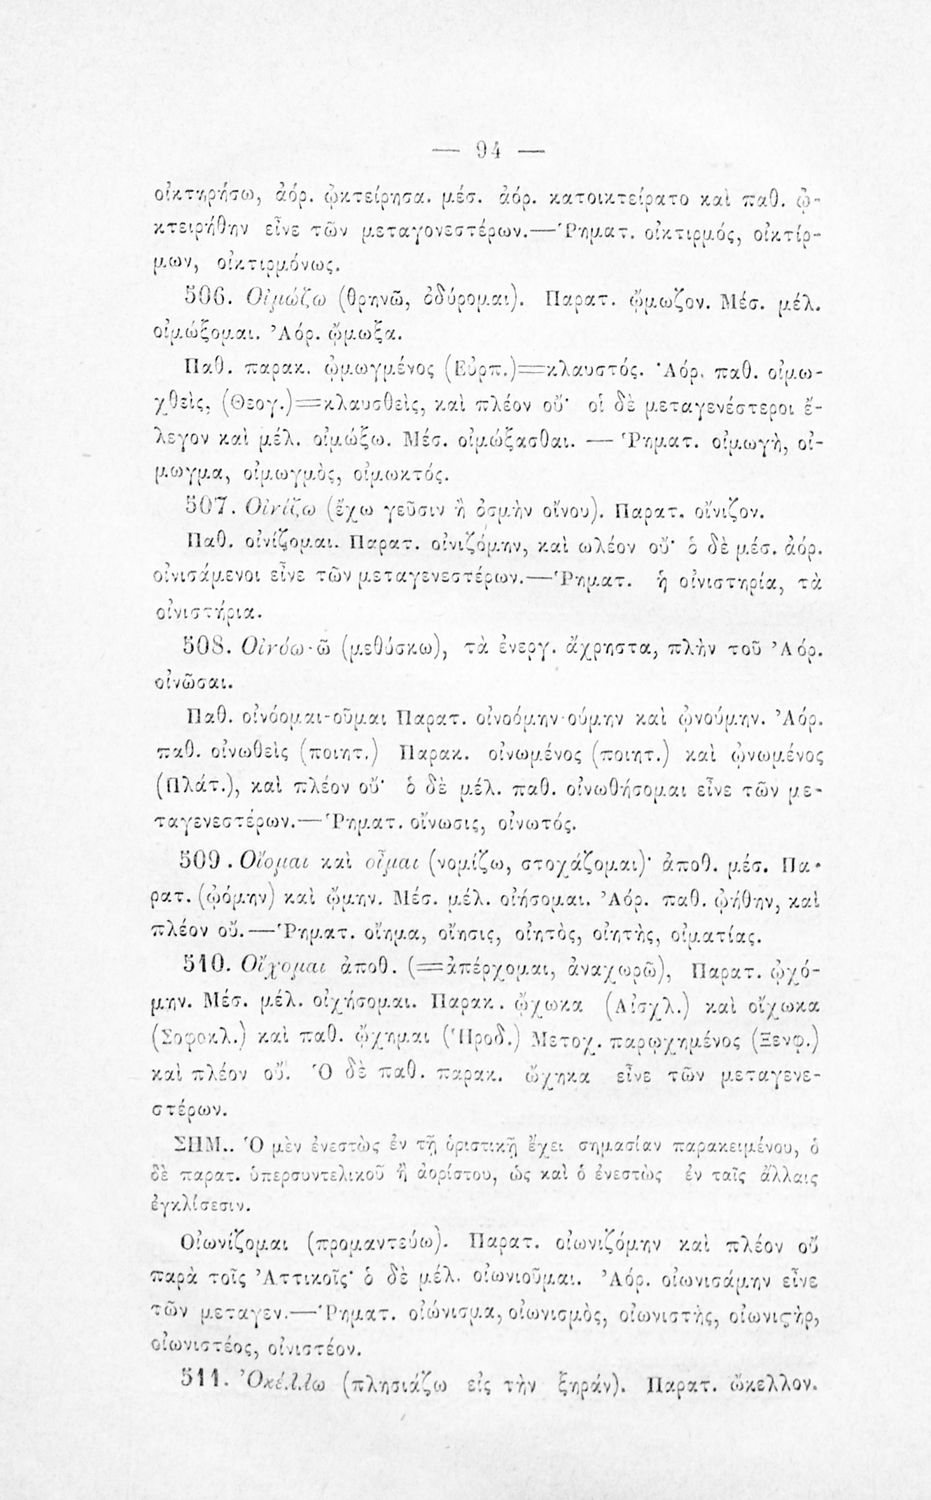 — 94 —
οἰκτηρήσω, ἀόρ. ᾠκτείρησα. μέσ. ἀόρ. κατοικτείρατο καὶ παθ. ᾠ-
κτειρήθην εἶνε τῶν μεταγονεστέρων.—Ῥηματ. οἰκτιρμός, οἰκτίρ-
μων, οἰκτιρμόνως.
506. Οἰμώζω (θρηνῶ, ὀδύρομαι). Παρατ. ᾤμωζον. Μέσ. μέλ.
οἰμώξομαι. Ἀόρ. ᾤμωξα.
Παθ. παρακ. ᾠμωγμένος (Εὐρπ.)=κλαυστός. Ἀόρ. παθ. οἰμω-
χθεὶς, (Θεογ.)=κλαυσθεὶς, καὶ πλέον οὔ· οἱ δὲ μεταγενέστεροι ἔ-
λεγον καὶ μέλ. οἰμώξω. Μέσ. οἰμώξασθαι. — Ῥηματ. οἰμωγὴ, οἴ-
μωγμα, οἰμωγμὸς, οἰμωκτός.
507. Οἰνίζω (ἔχω γεῦσιν ἢ ὀσμὴν οἴνου). Παρατ. οἴνιζον.
Παθ. οἰνίζομαι. Παρατ. οἰνιζόμην, καὶ ωλέον οὔ· ὁ δὲ μέσ. ἀόρ.
οἰνισάμενοι εἶνε τῶν μεταγενεστέρων.—Ῥηματ. ἡ οἰνιστηρία, τὰ
οἰνιστήρια.
508. Οἰνόω-ῶ (μεθύσκω), τὰ ἐνεργ. ἄχρηστα, πλὴν τοῦ Ἀόρ.
οἰνῶσαι.
Παθ. οἰνόομαι-οῦμαι Παρατ. οἰνοόμην-ούμην καὶ ᾠνούμην. Ἀόρ.
παθ. οἰνωθεὶς (ποιητ.) Παρακ. οἰνωμένος (ποιητ.) καὶ ᾠνωμένος
(Πλάτ.), καὶ πλέον οὔ· ὁ δὲ μέλ. παθ. οἰνωθήσομαι εἶνε τῶν με-
ταγενεστέρων.—Ῥηματ. οἴνωσις, οἰνωτός.
509. Οἴομαι καὶ οἶμαι (νομίζω, στοχάζομαι)· ἀποθ. μέσ. Πα-
ρατ. (ᾠόμην) καὶ ᾤμην. Μέσ. μέλ. οἰήσομαι. Ἀόρ. παθ. ᾠήθην, καὶ
πλέον οὔ.—Ῥηματ. οἴημα, οἴησις, οἰητὸς, οἰητὴς, οἰματίας.
510. Οἴχομαι ἀποθ. (=ἀπέρχομαι, ἀναχωρῶ), Παρατ. ᾠχό-
μην. Μέσ. μέλ. οἰχήσομαι. Παρακ. ᾤχωκα (Αἰσχλ.) καὶ οἴχωκα
(Σοφοκλ.) καὶ παθ. ᾤχημαι (Ἡροδ.) Μετοχ. παρῳχημένος (Ξενφ.)
καὶ πλέον οὔ. Ὁ δὲ παθ. παρακ. ᾤχηκα εἶνε τῶν μεταγενε-
στέρων.
ΣΗΜ.. Ὁ μὲν ἐνεστὼς ἐν τῇ ὁριστικῇ ἔχει σημασίαν παρακειμένου, ὁ
δὲ παρατ. ὑπερσυντελικοῦ ἢ ἀορίστου, ὡς καὶ ὁ ἐνεστὼς ἐν ταῖς ἄλλαις
ἐγκλίσεσιν.
Οἰωνίζομαι (προμαντεύω). Παρατ. οἰωνιζόμην καὶ πλέον οὔ
παρὰ τοῖς Ἀττικοῖς· ὁ δὲ μέλ. οἰωνιοῦμαι. Ἀόρ. οἰωνισάμην εἶνε
τῶν μεταγεν.—Ῥηματ. οἰώνισμα, οἰωνισμὸς, οἰωνιστὴς, οἰωνιϛὴρ,
οἰωνιστέος, οἰνιστέον.
511. Ὀκέλλω (πλησιάζω εἰς τὴν ξηράν). Παρατ. ὤκελλον.